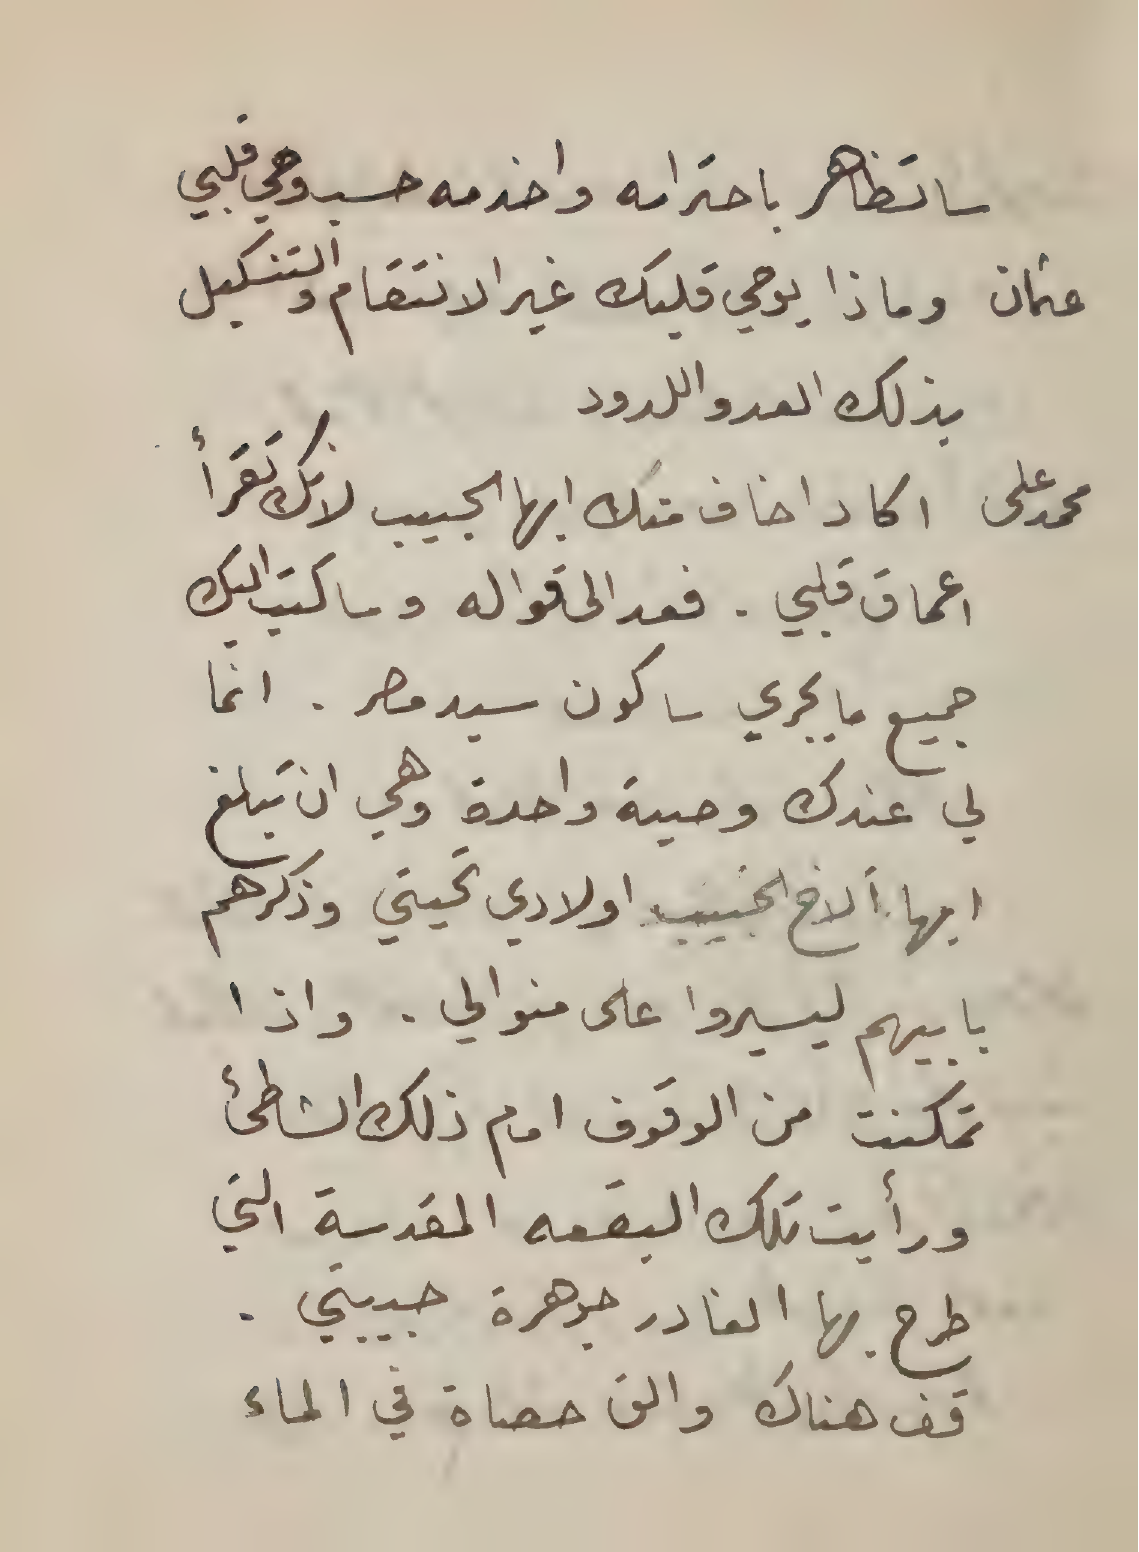 ساتظاهر باحترامه واخدمه حسب وحي قلبي
عثمان وماذا يوحي قلبك غير الانتقام والتنكيل
بذلك العدو اللدود
محمد علي اكاد اخاف منك ايها الحبيب لانك تقرأ
اعماق قلبي . فعد الى قواله وساكتب اليك
جميع ما يجري ساكون سيد مصر . انما
لي عندك وصية واحدة وهي ان تبلغ
ايها ألاخ الحبيب اولادي تحيتي وذكرهم
بابيهم ليسيروا على منوالي . واذا
تمكنت من الوقوف امام ذلك الشاطئ
ورأيت تلك البقعه المقدسة التي
طرح بها الغادر جوهرة حبيبتي .
قف هناك والق حصاة في الماء